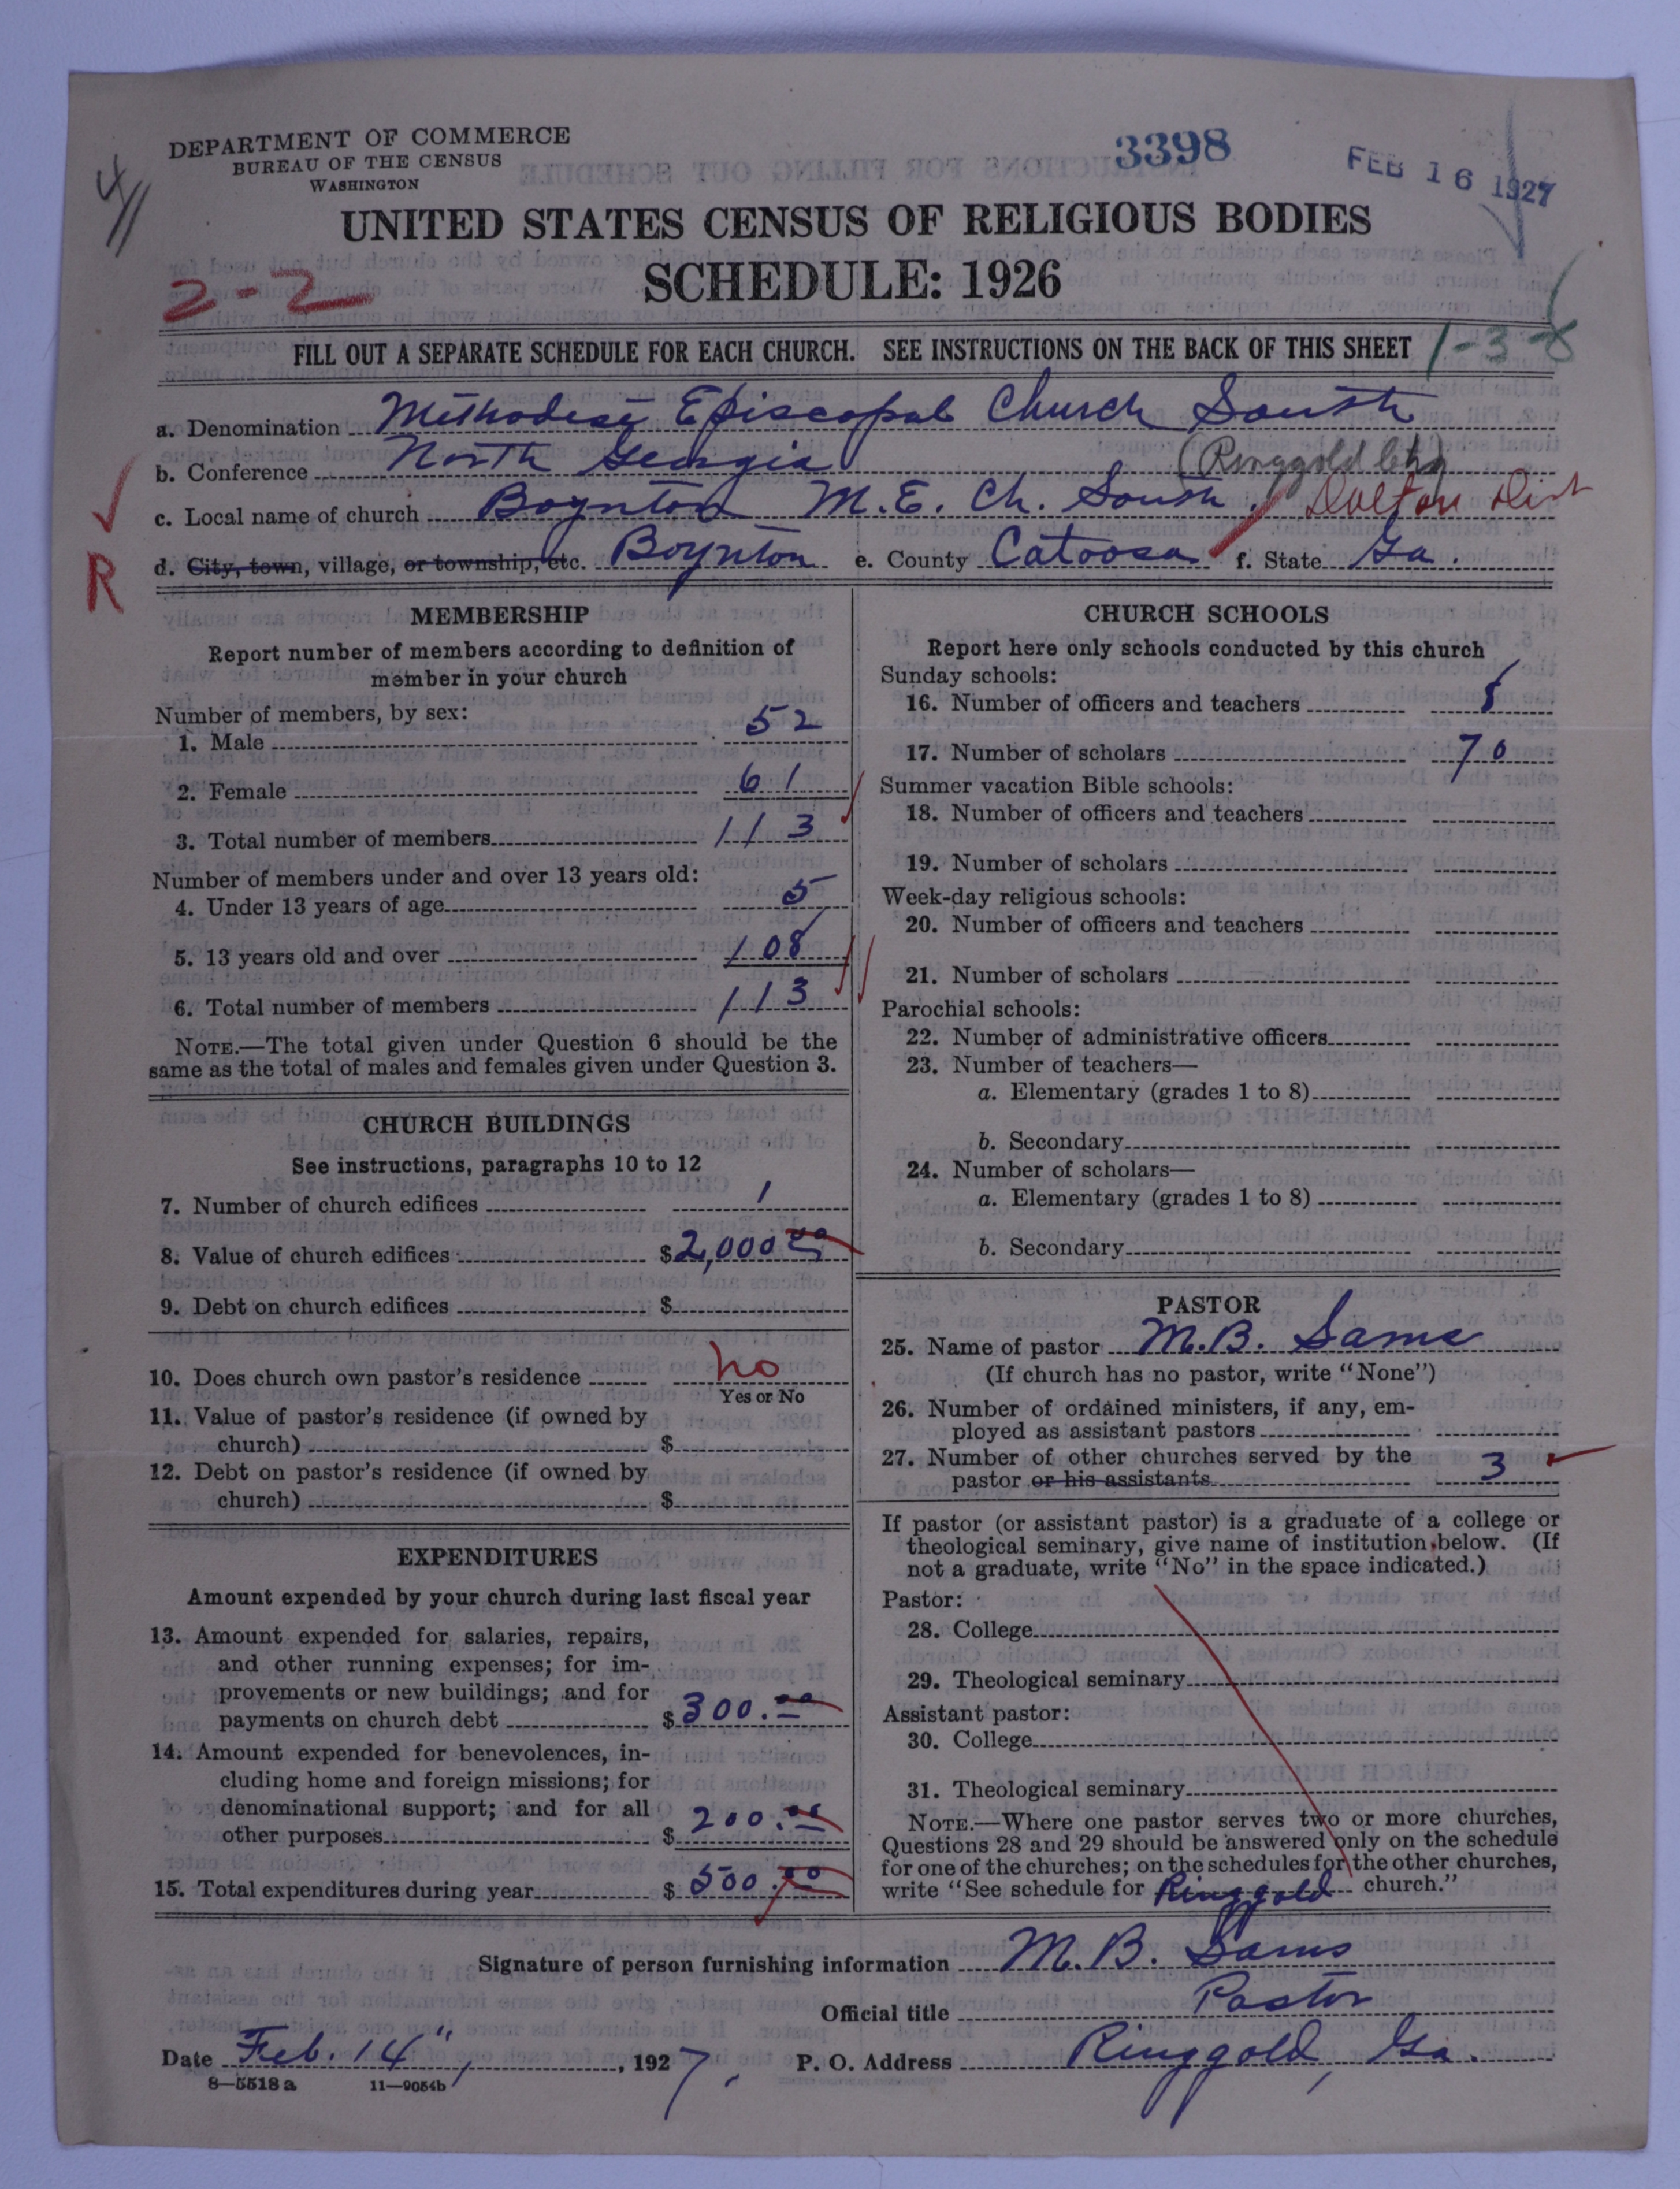 DEPARTMENT OF COMMERCE
BUREAU OF THE CENSUS
WASHINGTON
3398
FEB 16 1927
UNITED STATES CENSUS OF RELIGIOUS BODIES
SCHEDULE: 1926
2-2
FILL OUT A SEPARATE SCHEDULE FOR EACH CHURCH. SEE INSTRUCTIONS ON THE BACK OF THIS SHEET
1-3-8
a. Denomination Methodist Episcopal Church South
b. Conference North Georgia (Ringgold Ch)
c. Local name of church Boynton M.E. Ch. South. Dalton Dist
R
d. City, town, village, or township, etc. Boynton e. County Catoosa f. State Ga.
MEMBERSHIP
Report number of members according to definition of
member in your church
Number of members, by sex:
1. Male 52
2. Female 61
3. Total number of members 113
Number of members under and over 13 years old:
4. Under 13 years of age 5
5. 13 years old and over 108
6. Total number of members 113
NOTE.—The total given under Question 6 should be the
same as the total of males and females given under Question 3.
CHURCH BUILDINGS
See instructions, paragraphs 10 to 12
7. Number of church edifices 1
8. Value of church edifices $2,000 00
9. Debt on church edifices $
10. Does church own pastor's residence no
Yes or No
11. Value of pastor's residence (if owned by
church) $
12. Debt on pastor's residence (if owned by
church) $
EXPENDITURES
Amount expended by your church during last fiscal year
13. Amount expended for salaries, repairs,
and other running expenses; for im-
provements or new buildings; and for
payments on church debt $300.00
14. Amount expended for benevolences, in-
cluding home and foreign missions; for
denominational support; and for all
other purposes $200.00
15. Total expenditures during year $500.00
CHURCH SCHOOLS
Report here only schools conducted by this church
Sunday schools:
16. Number of officers and teachers
17. Number of scholars 70
Summer vacation Bible schools:
18. Number of officers and teachers
19. Number of scholars
Week-day religious schools:
20. Number of officers and teachers
21. Number of scholars
Parochial schools:
22. Number of administrative officers
23. Number of teachers—
a. Elementary (grades 1 to 8)
b. Secondary
24. Number of scholars—
a. Elementary (grades 1 to 8)
b. Secondary
PASTOR
25. Name of pastor M.B. Sams
(If church has no pastor, write "None")
26. Number of ordained ministers, if any, em-
ployed as assistant pastors
27. Number of other churches served by the
pastor or his assistants 3
If pastor (or assistant pastor) is a graduate of a college or
theological seminary, give name of institution below. (If
not a graduate, write "No" in the space indicated.)
Pastor:
28. College
29. Theological seminary
Assistant pastor:
30. College
31. Theological seminary
NOTE.—Where one pastor serves two or more churches,
Questions 28 and 29 should be answered only on the schedule
for one of the churches; on the schedules for the other churches,
write "See schedule for Ringgold church."
Signature of person furnishing information M. B. Sams
Official title Pastor
Date Feb. 14", 1927. P. O. Address Ringgold, Ga.
8—5518 a 11—9054b